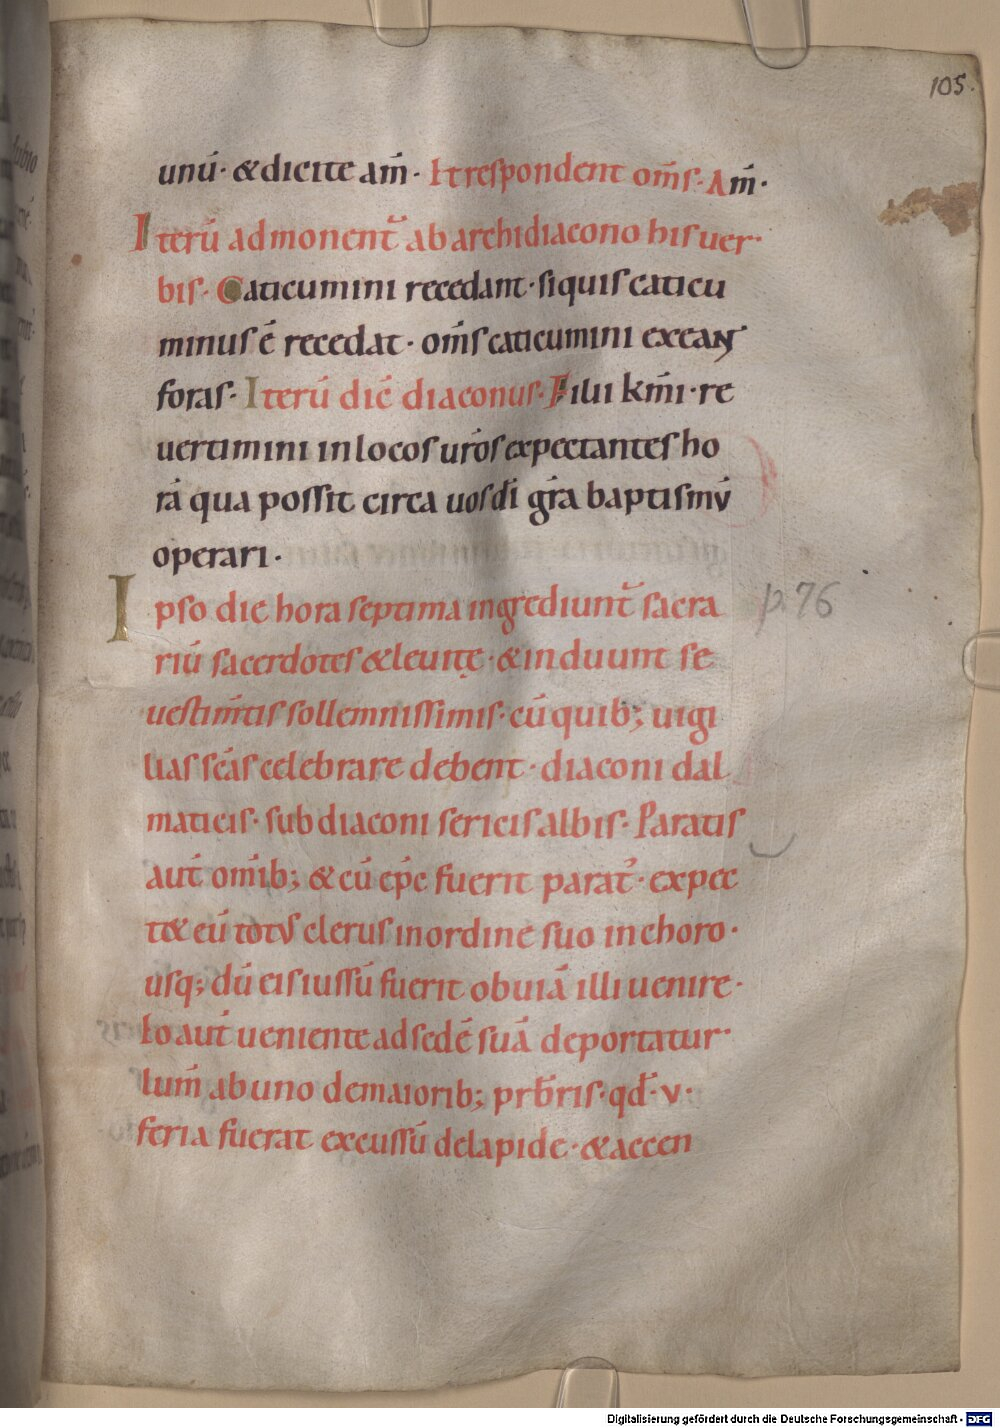 105.
unū· & dicite am̄· Et respondent om̄s· Am̄·
Iterū admonent᷒ ab archidiacono his uer·
bis· Caticumini recedant· siquis caticu
minus ē recedat· om̄s caticumini exeant
foras· Iterū dic̄ diaconus· Filii km̄i· re
uertimini in locos ur̄os expectantes ho
rā qua possit circa uos dī gr̄a baptismū
operari·
Ipso die hora septima ingrediunt᷒ sacra
riū sacerdotes & leuitę· & induunt se
uestim̄tis sollemnissimis· cū quib; uigi
lias sc̄as celebrare debent· diaconi dal
maticis· subdiaconi sericis albis· Paratis
aut̄ om̄ib; & cū ep̄c fuerit parat᷒· expec
t& eū totus clerus in ordine suo in choro·
usq; dū eis iussū fuerit obuiā illi uenire·
Eo aut̄ ueniente ad sedē suā deportatur·
lum̄ ab uno de maiorib; prb̄ris· qd̄· v·
feria fuerat excussū de lapide· & accen
p. 76
Digitalisierung gefördert durch die Deutsche Forschungsgemeinschaft - DFG